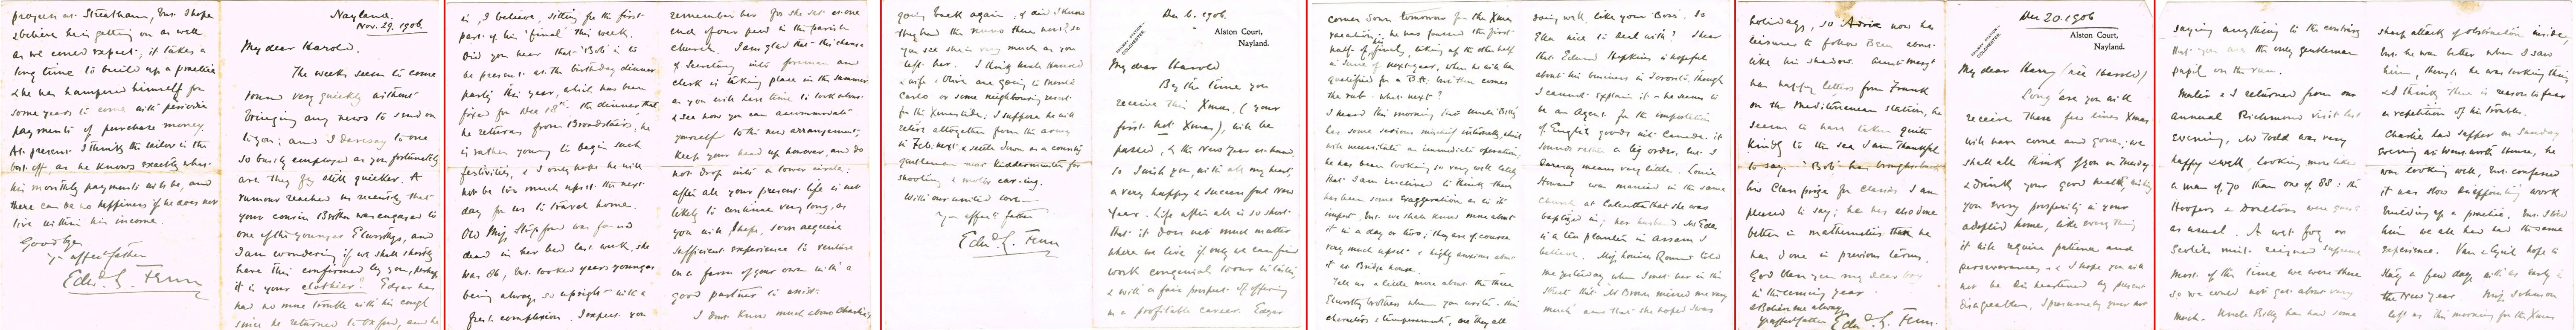 progress at Streatham, but I hope
& believe he is getting on as well
as we could expect; it takes a
long time to build up a practice
& he was hampered himself for
some years to come with periodic
payments of purchase money.
At present I think the sailor is the
best off, as he knows exactly what
his monthly payments will be, and
there can be no happiness if he does not
live within his income.
Goodbye
Yr affect father
Edw. L. Fenn
Nayland.
Nov. 29. 1906.
My dear Harold.
The weeks seem to come
round very quickly without
bringing any news to send on
to you; and I daresay to one
so busily employed as you fortunately
are they fly still quicker. A
rumour reached us recently that
your cousin Bertha was engaged to
one of the younger Elworthys, and
I am wondering if we shall shortly
have this confirmed by you, perhaps
it is your clothier? Edgar has
had no more trouble with his cough
since he returned to Oxford, and he
is, I believe, sitting for the first
part of his 'final' this week.
Did you hear that 'Bob' is to
be present at the birthday dinner
party this year, which has been
fixed for Dec 18th the dinner that
he returns from Broadstairs; he
is rather young to begin such
festivities, & I only hope he will
not be too much upset the next
day for us to travel home.
Old Miss Stopford was found
dead in her bed last week, she
was 86, but looked years younger
being always so upright with a
fresh complexion. I expect you
remember her for she sat at one
end of our pew in the parish
church. I am glad that this change
of Secretary into foreman and
clerk is taking place in the summer
as you will have time to look about
& see how you can accommodate
yourself to the new arrangement;
keep your head up however, and do
not drop into a lower circle:
after all your present life is not
likely to continue very long, as
you will I hope, soon acquire
sufficient experience to venture
on a farm of your own with a
good partner to assist.
I don't know much about Charlie's
going back again, & did I know
they had the nurse there next? so
you see she is very much as you
left her. I think Uncle Harold
& wife & Olive are going to Monte
Carlo or some neighbouring resort
for the Xmastide; I suppose he will
retire altogether from the army
in Feb. next & settle down as a country
gentleman near Kidderminster for
shooting & motor car-ing.
With our united love —
Yr affect father
Edw. L. Fenn
Dec 6. 1906.
COLCHESTER.
Alston Court,
Nayland.
My dear Harold
By the time you
receive this Xmas, (your
first hot Xmas), will be
passed, & the New Year at hand,
so I wish you with all my heart,
a very happy & successful New
Year. Life after all is so short
that it does not much matter
where we live if only we can find
work congenial to our tastes,
& with a fair prospect of offering
us a profitable career. Edgar
comes down tomorrow for the Xmas
vacation; he has passed the first
half of his finals, taking up the other half
in June of next year, when he will be
qualified for a B.A. but then comes
the rub — what next?
I heard this morning that Uncle Billy
has some serious mischief internally, which
will necessitate an immediate operation;
he has been looking so very well lately
that I am inclined to think there
has been some exaggeration as to its
import, but we shall know more about
it in a day or two; they are of course
very much upset & highly anxious about
it at Bridge house.
Tell us a little more about the three
Elworthy brothers when you write — their
characters & temperaments, are they all
doing well, like your 'Boss'. Do
Ellen nice to deal with? I hear
that Edward Hopkins is hopeful
about his business in Toronto, though
I cannot explain it — he seems to
be an Agent for the importation
of English goods into Canada. it
sounds rather a big order, but I
daresay means very little. Louie
Howard was married in the same
Church at Calcutta that she was
baptized in; her husband Mr Ede
is a tea planter in Assam I
believe. Miss Louisa Round told
me yesterday when I met her in the
street that Mr Brown missed me very
much and that she hoped I was
holidays, so Advie now has
leisure to follow Bee about
like his shadow. Aunt Margt
has happy letters from Frank
on the Mediterranean station, he
seems to have taken quite
kindly to the sea I am thankful
to say. 'Bob' has brought back
his Class prize for Classics I am
pleased to say; he has also done
better in mathematics than he
has done in previous terms.
God bless you my dear boy
in the coming year
& Believe me always
Yr affect father Edw. L. Fenn.
Dec 20. 1906
COLCHESTER.
Alston Court,
Nayland.
My dear Harry (née Harold)
Long 'ere you will
receive these few lines Xmas
will have come and gone; we
shall all think of you on Tuesday
& drink your good health, wishing
you every prosperity in your
adopted home, like everything
it will require patience and
perseverance, & I hope you will
not be disheartened by present
disagreeables, I presume by your not
saying anything to the contrary
that you are the only gentleman
pupil on the run.
Mater & I returned from our
annual Richmond visit last
evening, Mr Todd was very
happy & well, looking more like
a man of 70 than one of 88: the
Hoopers & Doultons were guests
as usual. A wet fog or
Scotch mist reigned supreme
most of the time we were there
so we could not get about very
much. Uncle Billy has had some
sharp attack of obstruction inside,
but he was better when I saw
him, though he was looking thin,
& I think there is reason to fear
a repetition of his trouble.
Charlie had supper on Sunday
evening at Wentworth House, he
was looking well, but confessed
it was slow & uphill work
building up a practice. But I told
him we all had had the same
experience. Van & Cyril hope to
stay a few days with us early in
the New Year. Miss Johnson
left us this morning for the Xmas